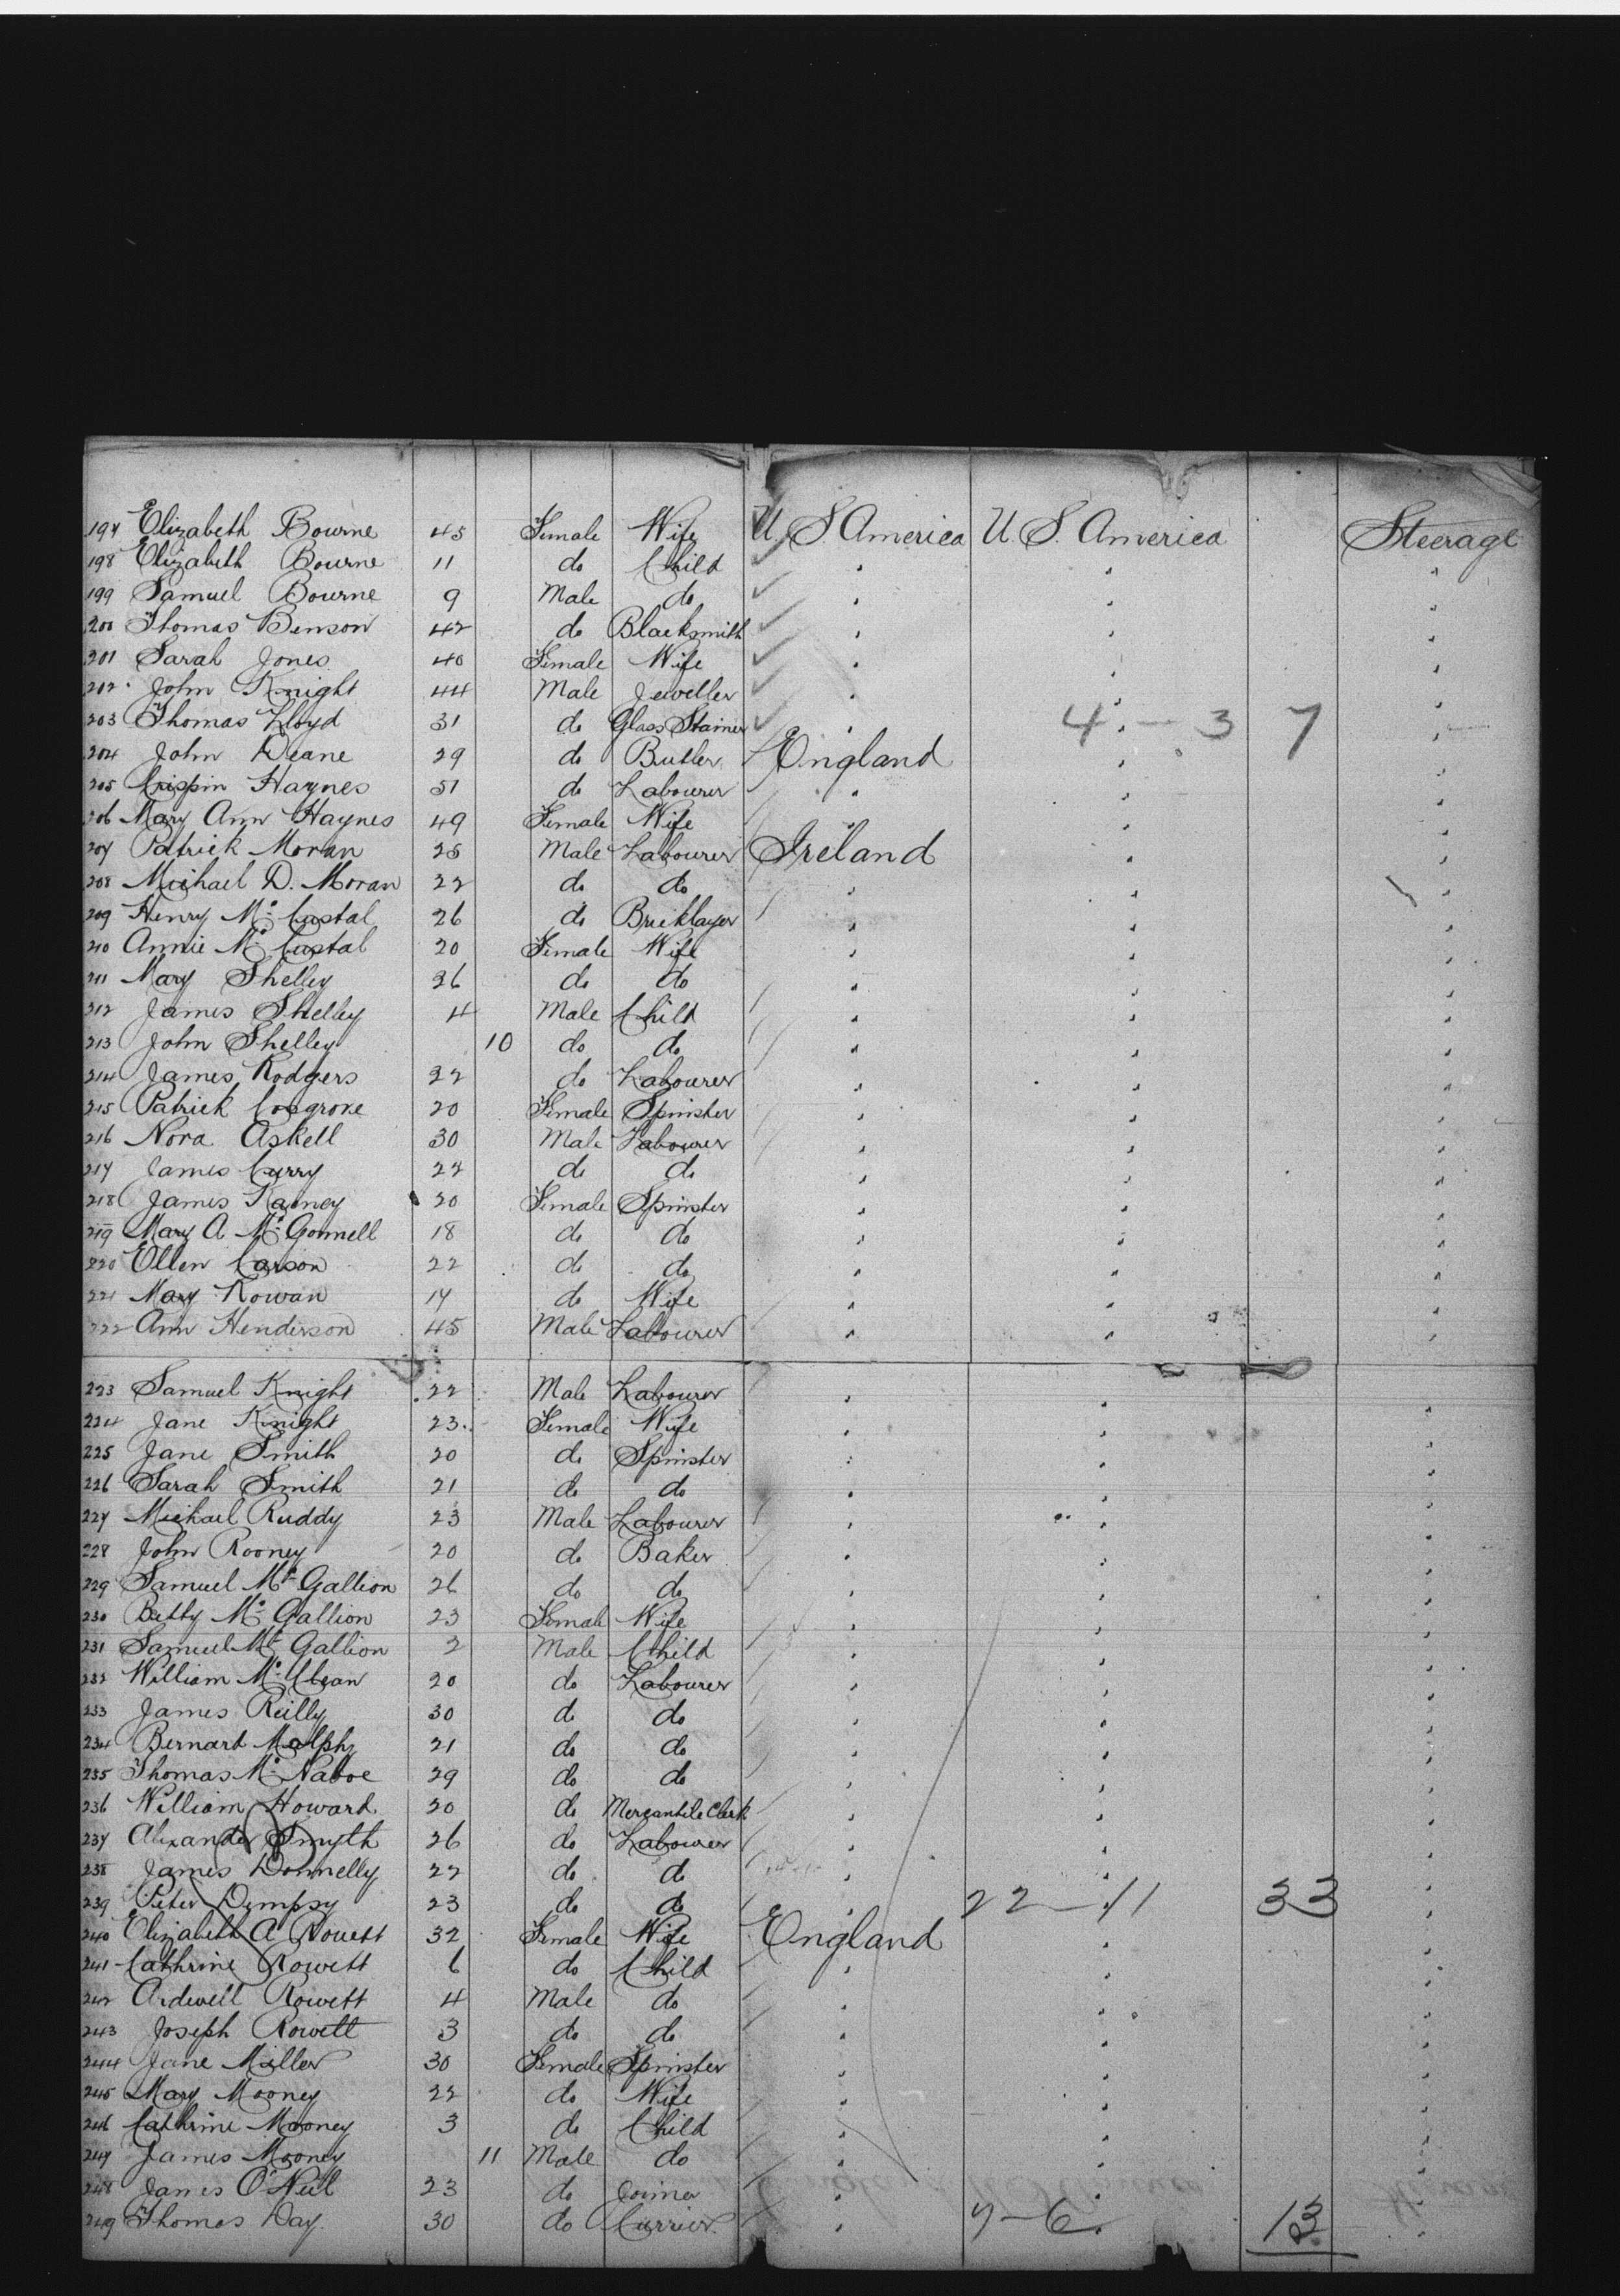 197 Elizabeth Bourne 45 Female Wife U. S America U. S. America Steerage
198 Elizabeth Bourne 11 do Child " " "
199 Samuel Bourne 9 Male do " " "
200 Thomas Benson 42 do Blacksmith " " "
201 Sarah Jones 40 Female Wife " " "
202 John Knight 44 Male Jeweller " " "
203 Thomas Lloyd 31 do Glass Stainer " 4 " — 3 7 "
204 John Deane 29 do Butler England " "
205 Crispin Haynes 51 do Labourer " " "
206 Mary Ann Haynes 49 Female Wife " " "
207 Patrick Moran 25 Male Labourer Ireland " "
208 Michael D. Moran 22 do do " " "
209 Henry Mc Castal 26 do Bricklayer " " "
210 Annie Mc Castal 20 Female Wife " " "
211 Mary Shelley 26 do do " " "
212 James Shelley 4 Male Child " " "
213 John Shelley 10 do do " " "
214 James Rodgers 22 do Labourer " " "
215 Patrick Cosgrove 20 Female Spinster " " "
216 Nora Askell 30 Male Labourer " " "
217 James Curry 22 do do " " "
218 James Kaoney 20 Female Spinster " " "
219 Mary A Mc Gonnell 18 do do " " "
220 Ellen Carson 22 do do " " "
221 Mary Rowan 17 do Wife " " "
222 Ann Henderson 45 Male Labourer " " "
223 Samuel Knight 22 Male Labourer " " "
224 Jane Knight 23 Female Wife " " "
225 Jane Smith 20 do Spinster " " "
226 Sarah Smith 21 do do " " "
227 Michael Ruddy 23 Male Labourer " " "
228 John Rooney 20 do Baker " " "
229 Samuel Mc Gallion 26 do do " " "
230 Betty Mc Gallion 23 Female Wife " " "
231 Samuel Mc Gallion 2 Male Child " " "
232 William Mc Clean 20 do Labourer " " "
233 James Reilly 30 do do " " "
234 Bernard Malphy 21 do do " " "
235 Thomas Mc Naboe 29 do do " " "
236 William Howard 20 do Mercantile Clerk " " "
237 Alexander Smyth 26 do Labourer " " "
238 James Donnelly 22 do do " " "
239 Peter Dempsy 23 do do " 22 — 11 33 "
240 Elizabeth A Rowett 32 Female Wife England " "
241 Cathrine Rowett 6 do Child " " "
242 Ardwell Rowett 4 Male do " " "
243 Joseph Rowett 3 do do " " "
244 Jane Miller 30 Female Spinster " " "
245 Mary Mooney 22 do Wife " " "
246 Cathrine Mooney 3 do Child " " "
247 James Mooney 11 Male do " " "
248 James O'Neil 23 do Joiner " " "
249 Thomas Day. 30 do Currier. " 7 - 6 13 "